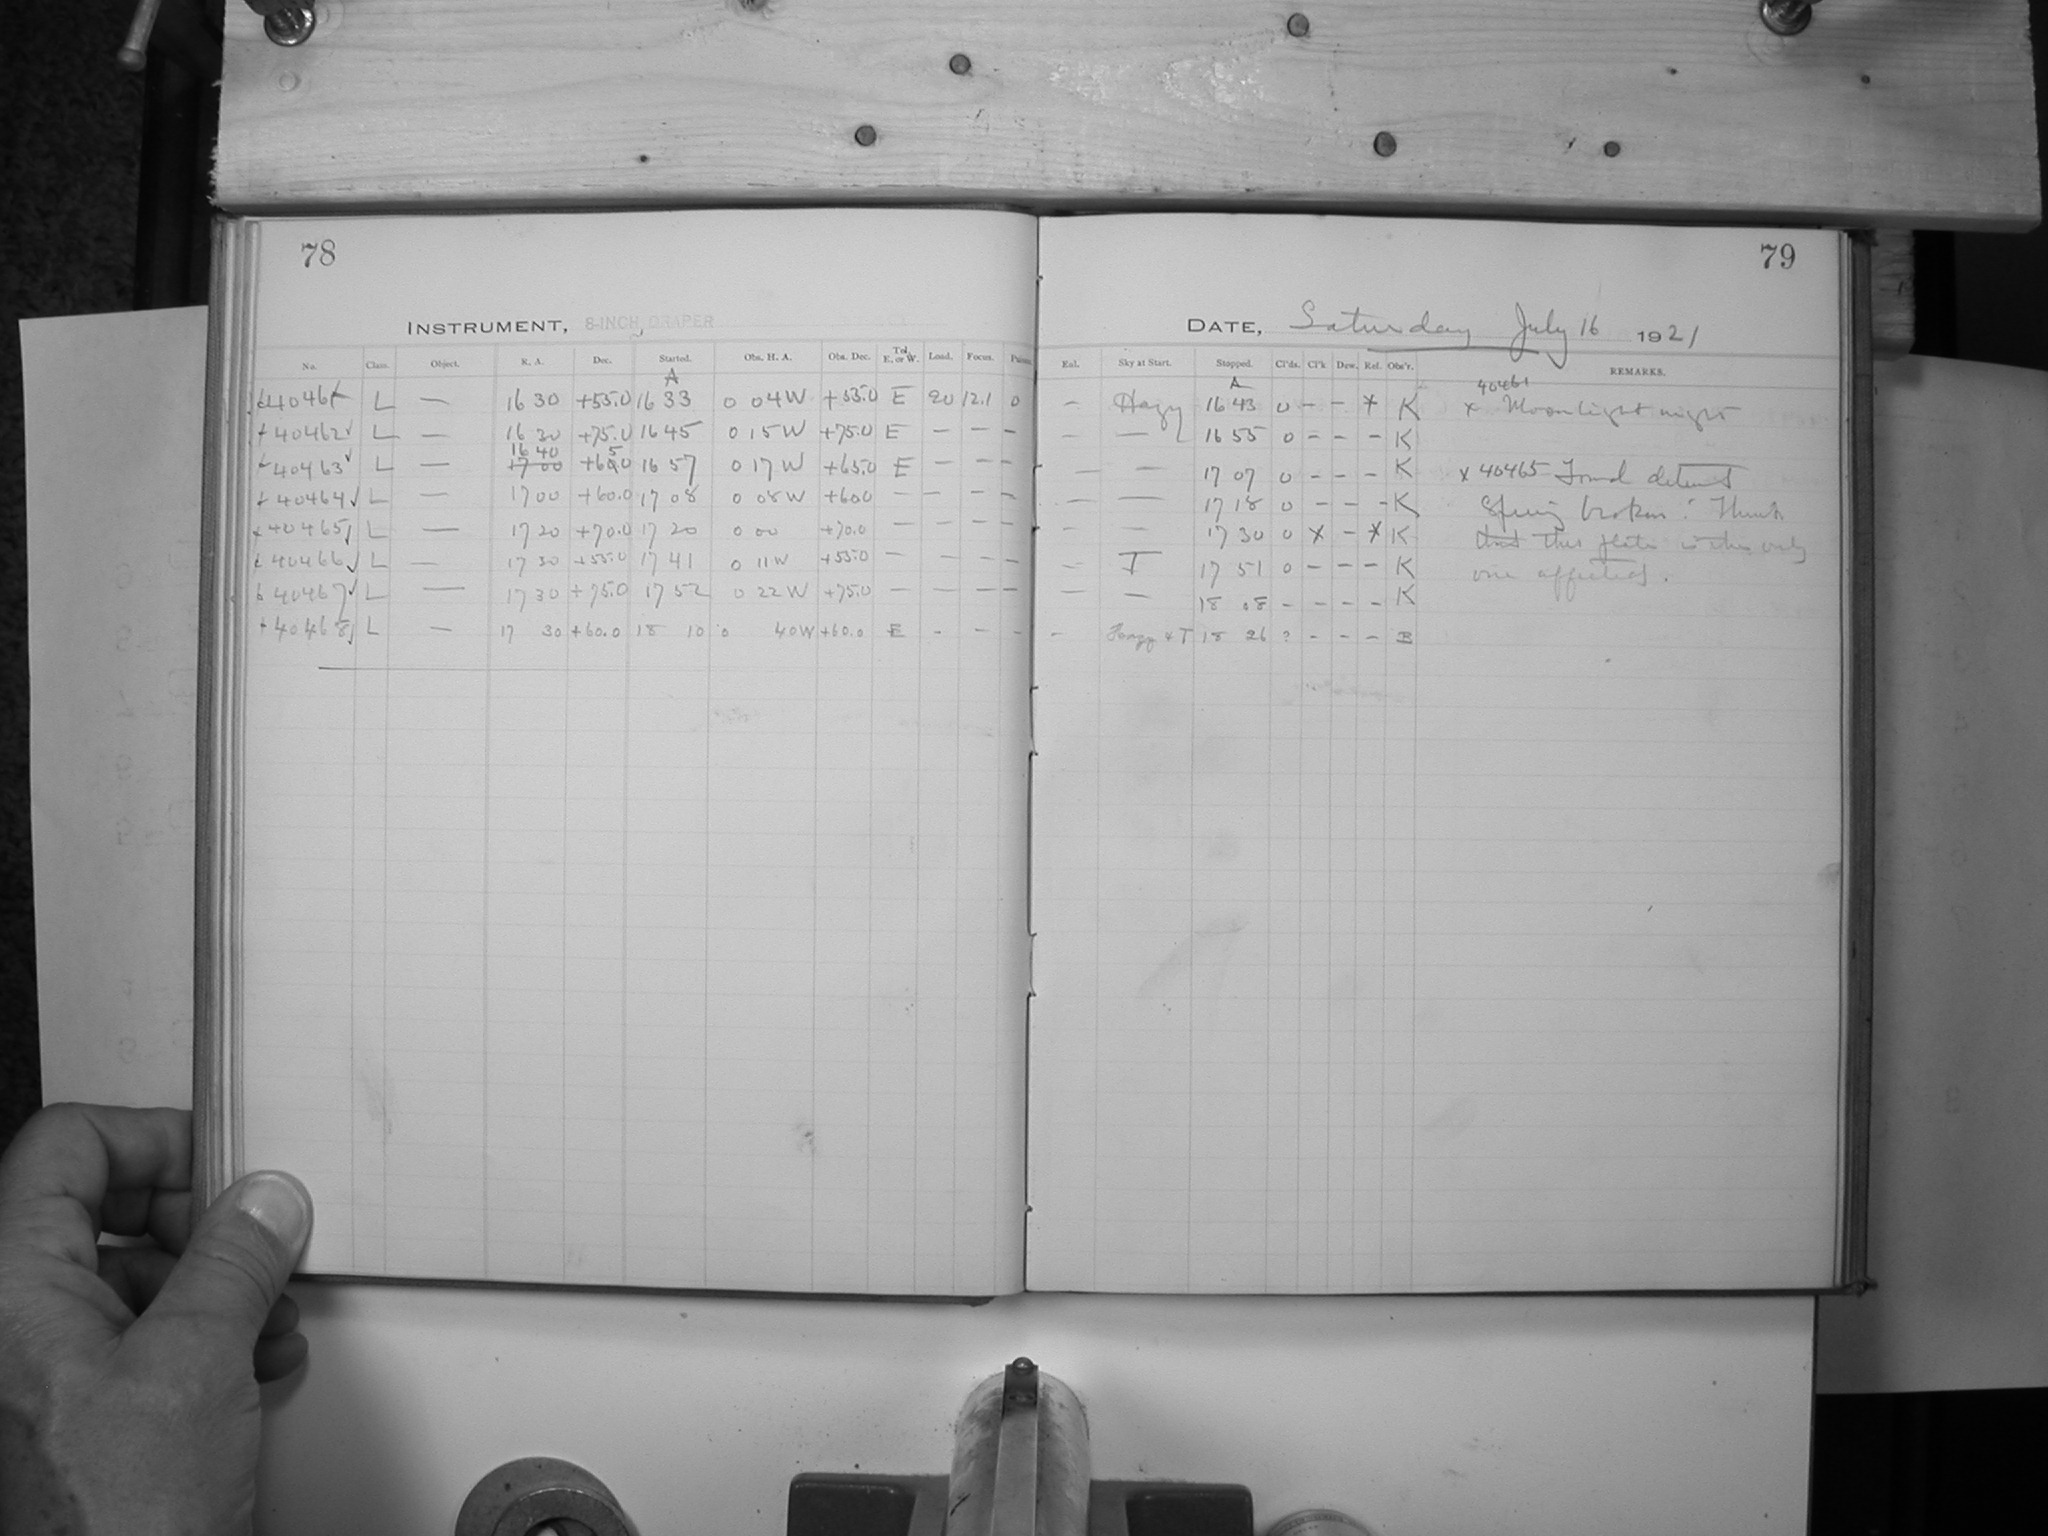 78
79
INSTRUMENT, 8-INCH DRAPER
DATE, Saturday July 16 1921
No. Class. Object. R. A. Dec. Started. Obs. H. A. Obs. Dec. Tel. E. or W. Load. Focus. Eml. Sky at Start. Stopped. Cl'ds. Cl'k Dew. Rel. Obs'r. REMARKS.
A A 40461
40461 L — 16 30 +55.0 16 33 0 04 W +55.0 E 20 12.1 0 — Hazy 16 43 0 – – x K x Moonlight night
40462 L — 16 30 +75.0 16 45 0 15 W +75.0 E – – – – — 16 55 0 – – – K
16 40 5
40463 L — 17 00 +60.0 16 57 0 17 W +65.0 E – – – — — 17 07 0 – – – K x 40465 Found detent
40464 L — 17 00 +60.0 17 08 0 08 W +60.0 – – – – — — 17 18 0 – – – K Spring broken. Think
40465 L — 17 20 +70.0 17 20 0 00 +70.0 – – – – — — 17 30 0 x – x K that this plate is the only
40466 L — 17 30 +55.0 17 41 0 11 W +55.0 – – – – — T 17 51 0 – – – K one affected.
40467 L — 17 30 +75.0 17 52 0 22 W +75.0 – – – – — — 18 08 – – – – K
40468 L — 17 30 +60.0 18 10 0 40 W +60.0 E – – – – Hazy & T 18 26 ? – – – B